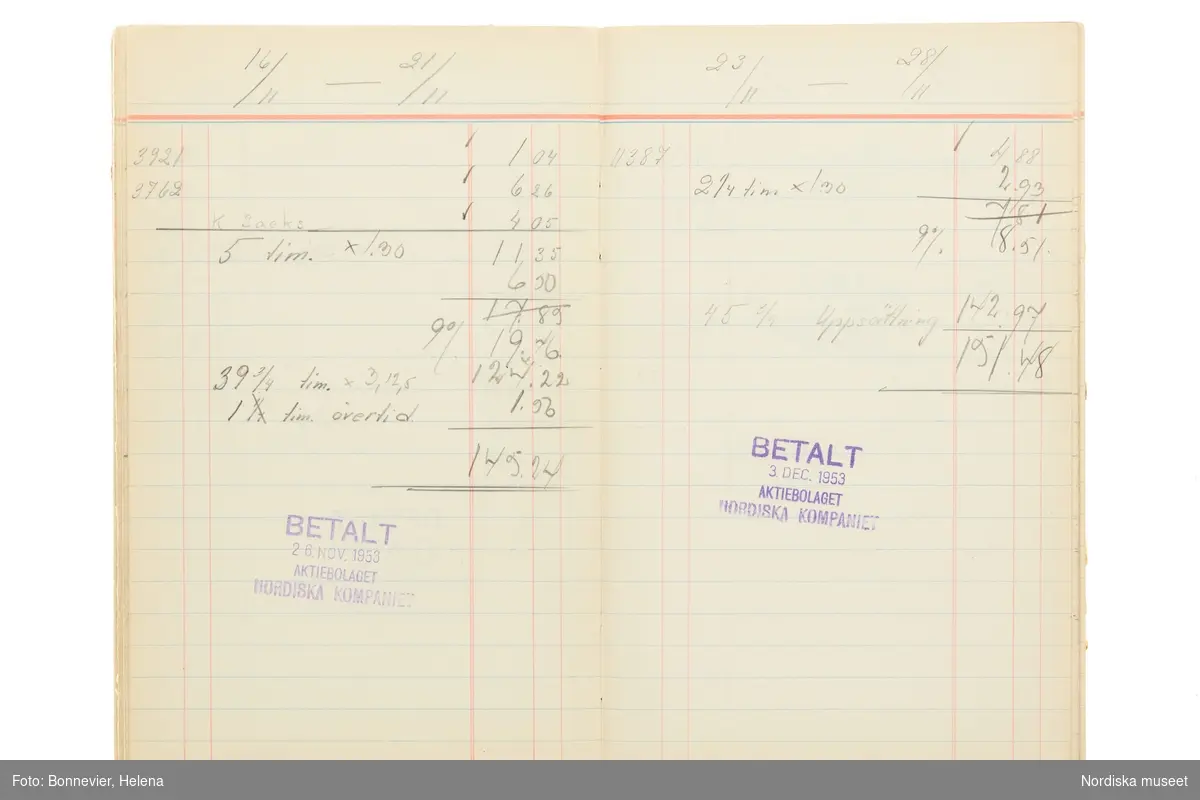 16/11 — 21/11
3921 1 04
3762 6 26
K Sacks 4 05
5 tim. x 1.30 11 35
6 50
17.85
9% 19.46.
39 3/4 tim. x 3,12,5 124.22
1 tim. övertid. 1.56
145.24
BETALT
26. NOV. 1953
AKTIEBOLAGET
NORDISKA KOMPANIET
23/11 — 28/11
11387 4 88
2 1/4 tim x 1.30 2.93
7.81
9%. 8.51.
45 3/4 Uppsättning 142.97
151.48
BETALT
3. DEC. 1953
AKTIEBOLAGET
NORDISKA KOMPANIET
Foto: Bonnevier, Helena
Nordiska museet